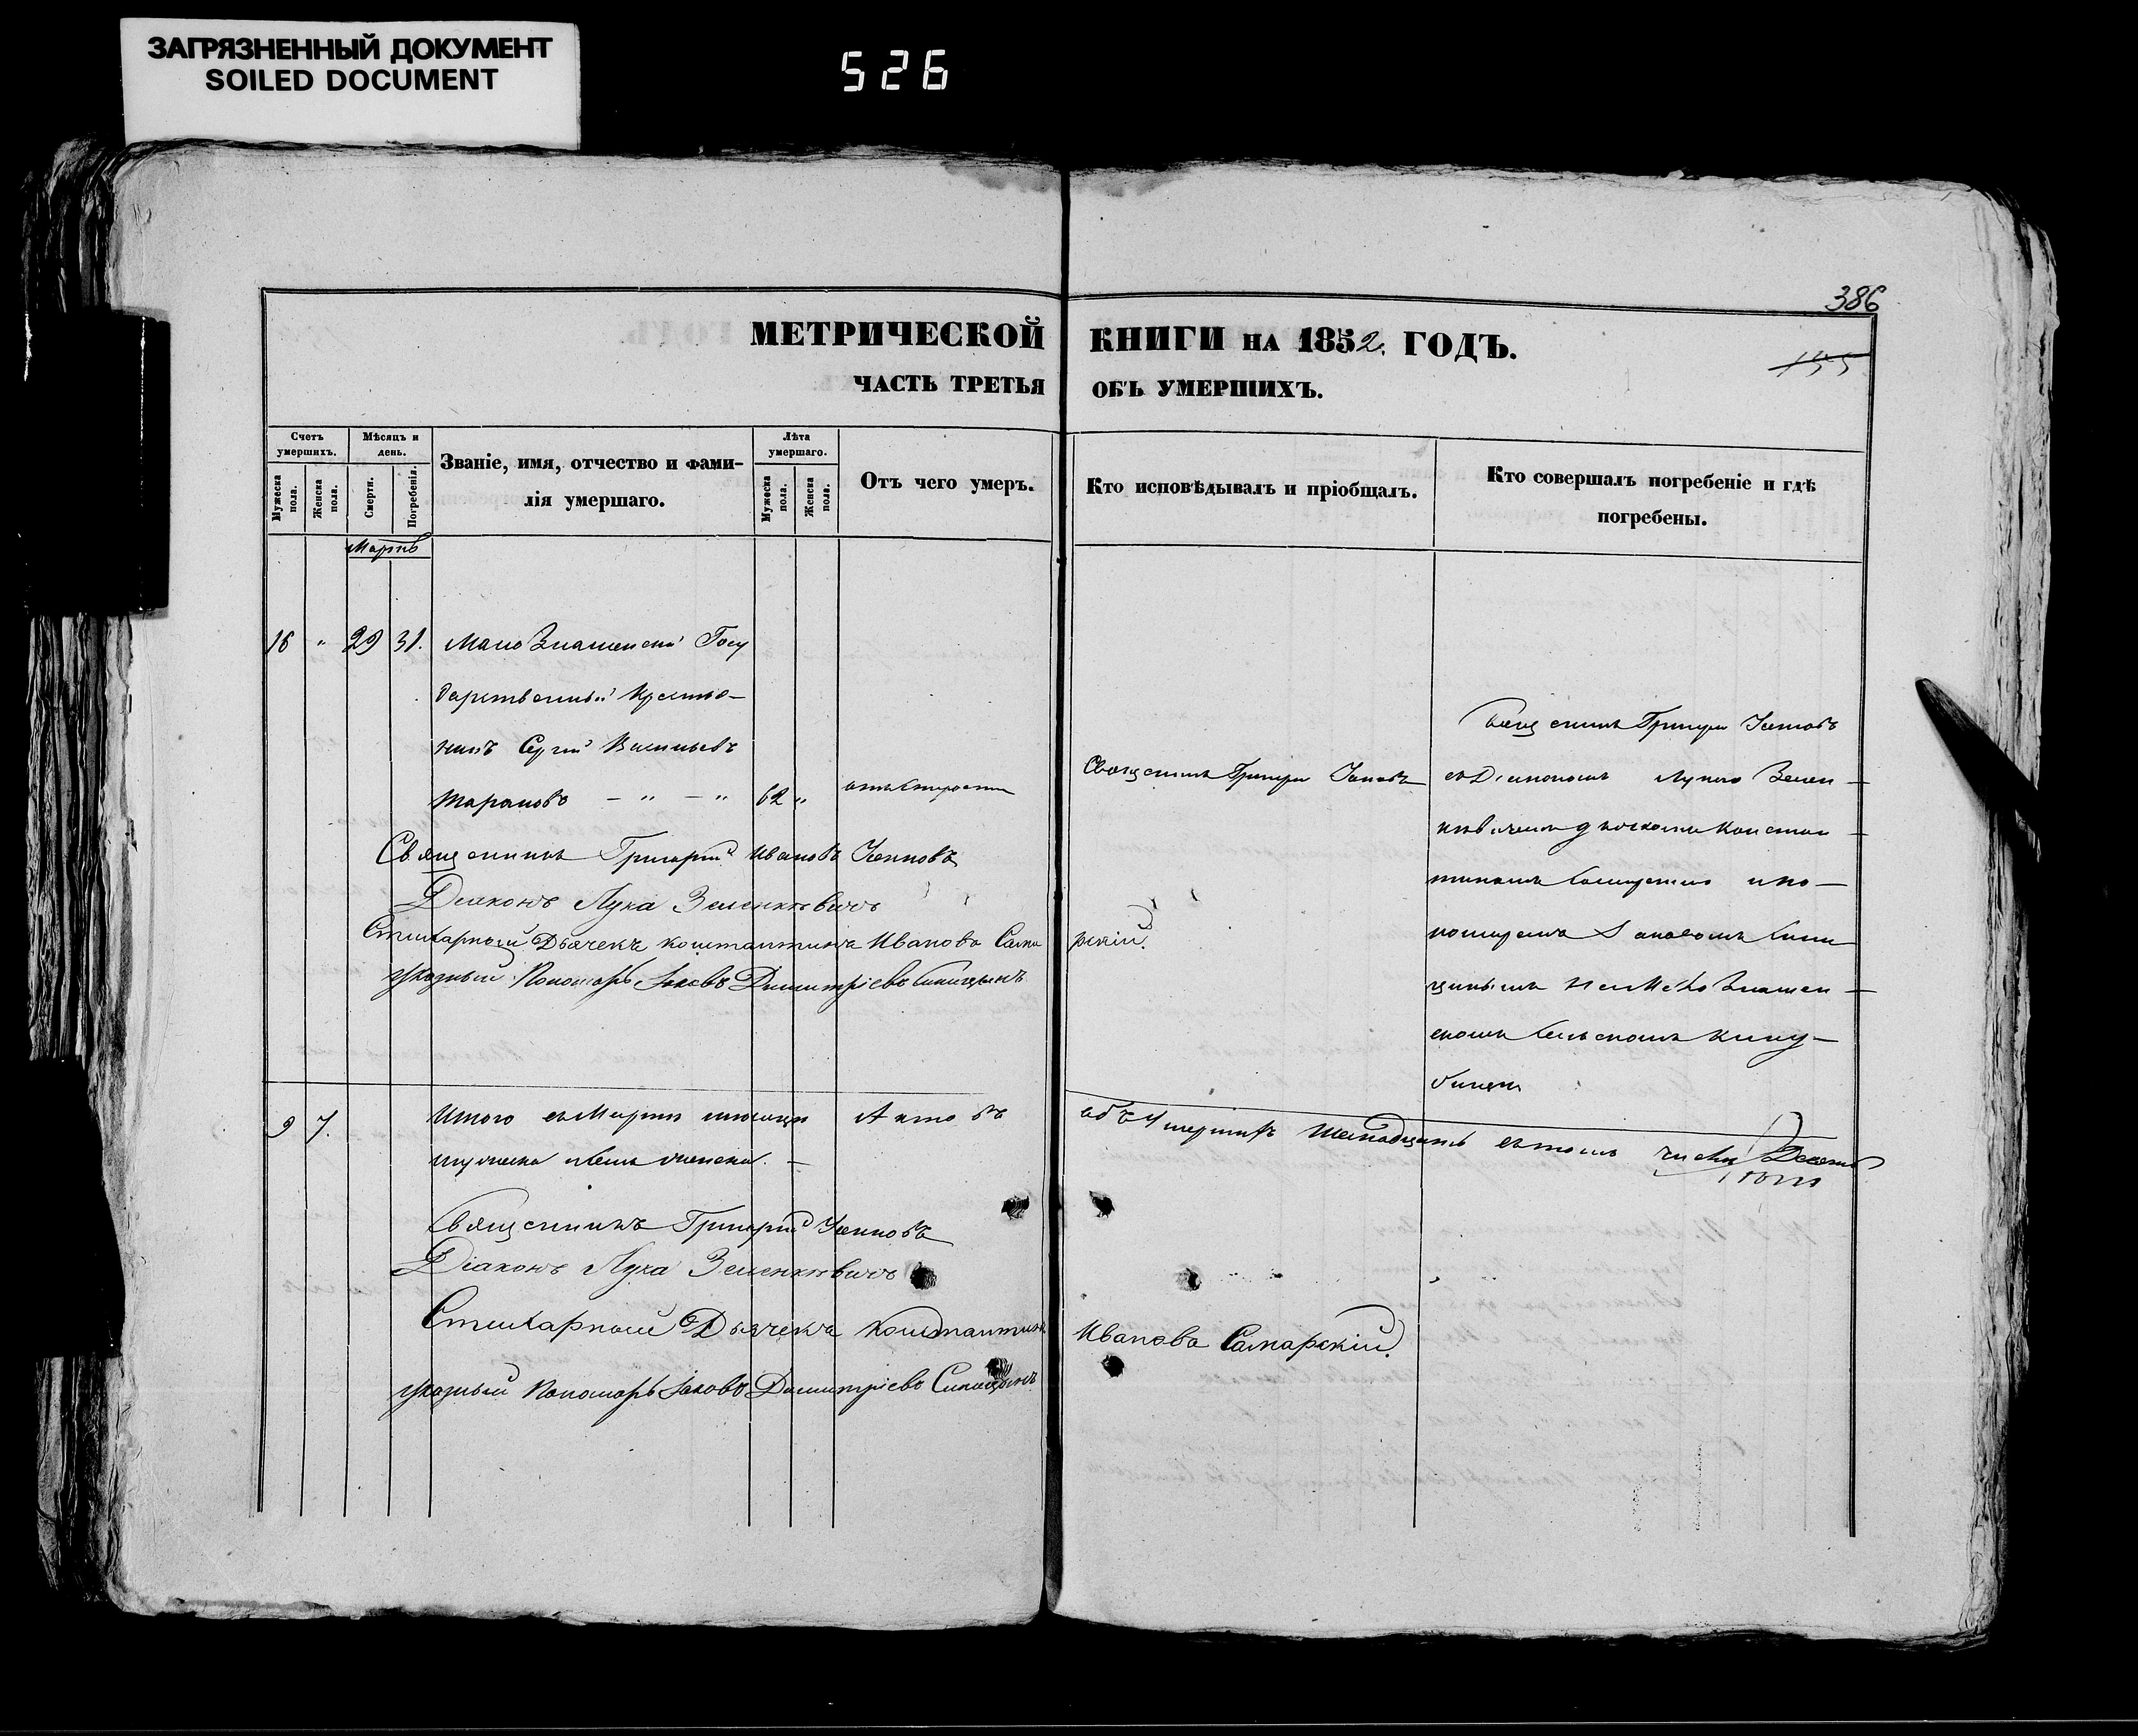 ЗАГРЯЗНЕННЫЙ ДОКУМЕНТ
SOILED DOCUMENT
526
386
МЕТРИЧЕСКОЙ КНИГИ НА 1852. ГОДЪ.
155
ЧАСТЬ ТРЕТЬЯ ОБЪ УМЕРШИХЪ.
Счетъ умершихъ.
Мужеска пола.
Женска пола.
Мѣсяцъ и день.
Смерти.
Погребенія.
Званіе, имя, отчество и фами-
лія умершаго.
Лѣта умершаго.
Мужеска пола.
Женска пола.
Отъ чего умеръ.
Кто исповѣдывалъ и пріобщалъ.
Кто совершалъ погребеніе и гдѣ
погребены.
Мартъ
16 " 29 31. Мало Знаменскій Госу
дарственный Крестья-
нинъ Сергій Васильевъ
Тарановъ - " - " 62 " отъ Старости
Священникъ Григорій
Священникъ Григорій
съ Діакономъ Лукою Зелен-
кѣвичемъ дьячкомъ Констан-
тиномъ Самарскимъ и по-
номаремъ Іаковомъ Сини-
цинымъ Знамен-
скомъ Сельскомъ клад-
бищѣ
Священникъ Григорій Ивановъ
Діаконъ Лука Зеленкѣвичъ
Стихарный Дьячекъ Константинъ Ивановъ Сама рскій.
Указный Пономарь Іаковъ Димитріевъ Синицынъ
9 7. Итого въ Мартѣ мѣсяцѣ А кто въ объ Умершихъ Шестнадцать въ томъ числѣ Девять
мужеска и Семь женска. -
Священникъ Григорій
Діаконъ Лука Зеленкѣвичъ
Стихарный Дьячекъ Константинъ Ивановъ Самарскій.
Указный Пономарь Іаковъ Димитріевъ Синицынъ